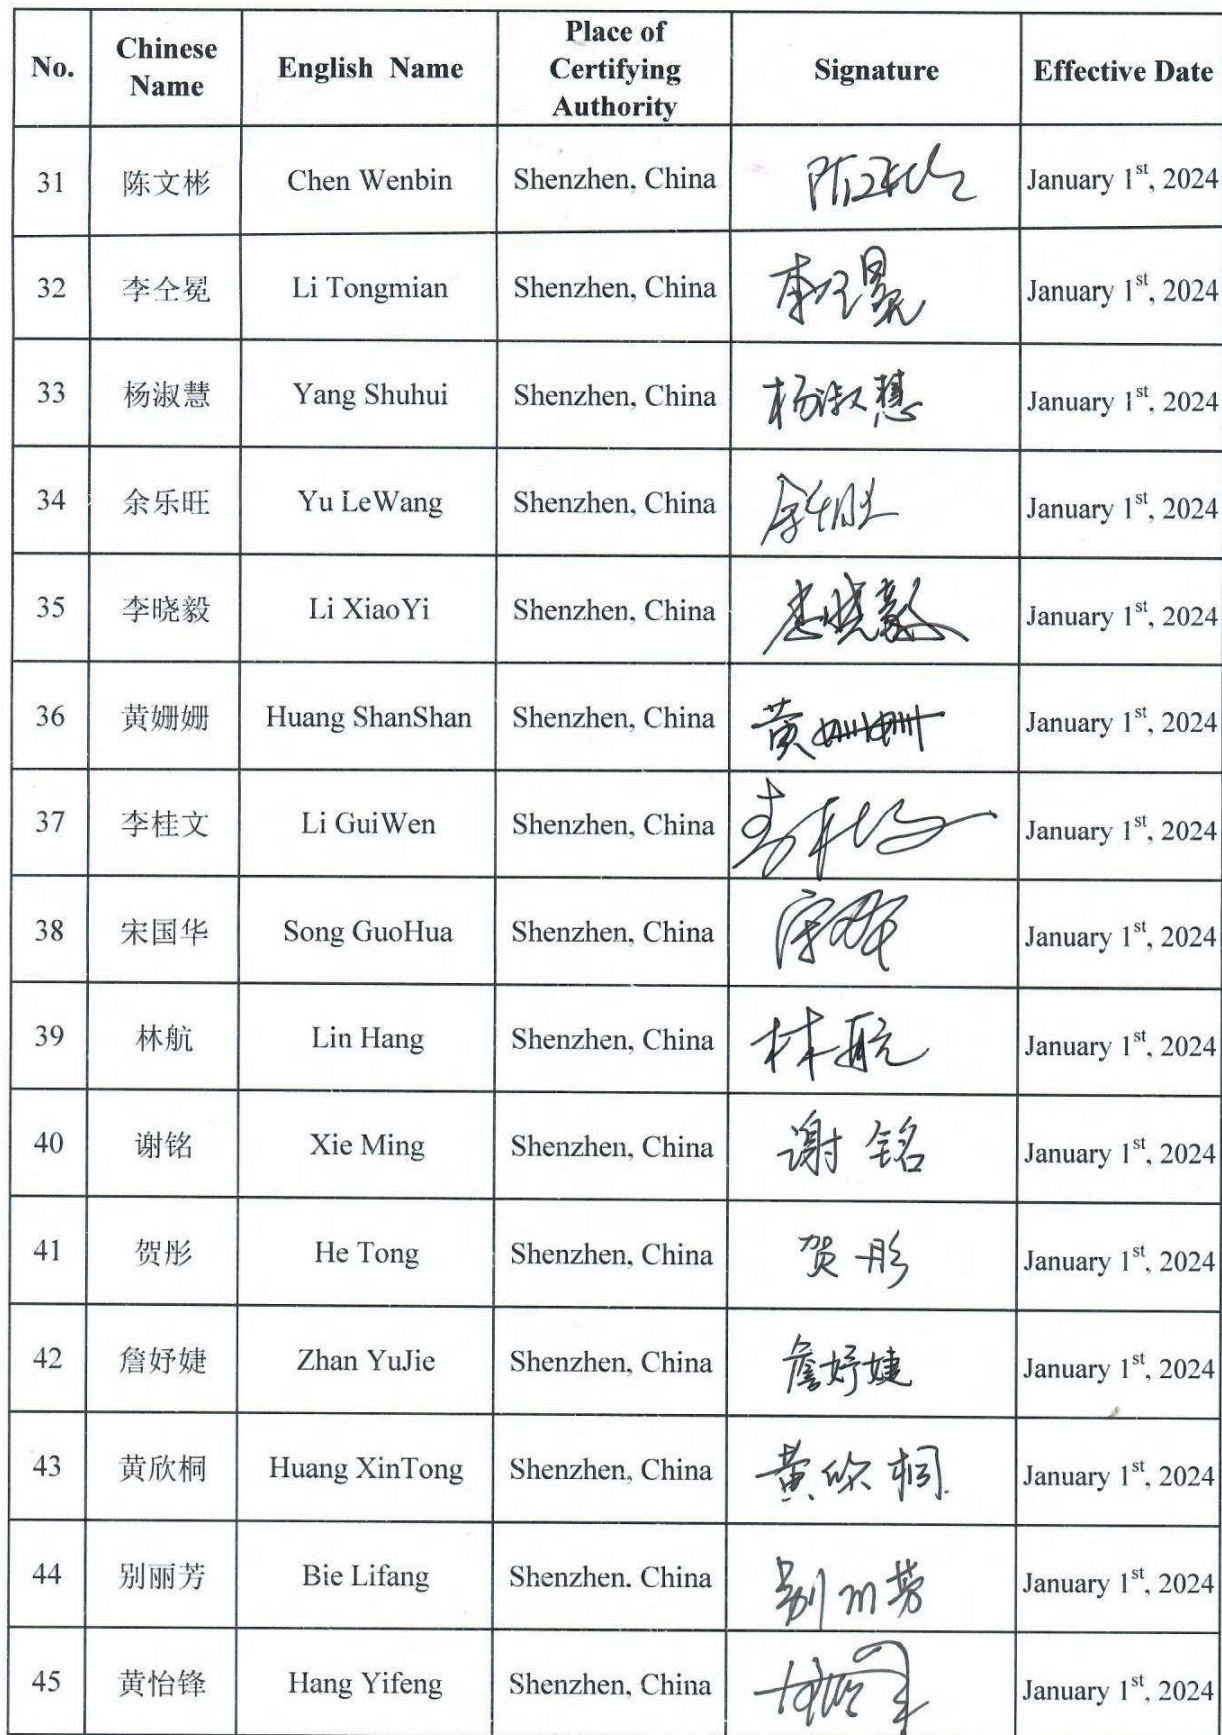 No. Chinese Name English Name Place of Certifying Authority Signature Effective Date
31 陈文彬 Chen Wenbin Shenzhen, China January 1st, 2024
32 李仝冕 Li Tongmian Shenzhen, China January 1st, 2024
33 杨淑慧 Yang Shuhui Shenzhen, China 杨淑慧 January 1st, 2024
34 余乐旺 Yu LeWang Shenzhen, China January 1st, 2024
35 李晓毅 Li XiaoYi Shenzhen, China 李晓毅 January 1st, 2024
36 黄姗姗 Huang ShanShan Shenzhen, China 黄姗姗 January 1st, 2024
37 李桂文 Li GuiWen Shenzhen, China January 1st, 2024
38 宋国华 Song GuoHua Shenzhen, China January 1st, 2024
39 林航 Lin Hang Shenzhen, China 林航 January 1st, 2024
40 谢铭 Xie Ming Shenzhen, China 谢铭 January 1st, 2024
41 贺彤 He Tong Shenzhen, China 贺彤 January 1st, 2024
42 詹妤婕 Zhan YuJie Shenzhen, China 詹妤婕 January 1st, 2024
43 黄欣桐 Huang XinTong Shenzhen, China 黄欣桐 January 1st, 2024
44 别丽芳 Bie Lifang Shenzhen. China 别丽芳 January 1st, 2024
45 黄怡锋 Hang Yifeng Shenzhen, China January 1st, 2024